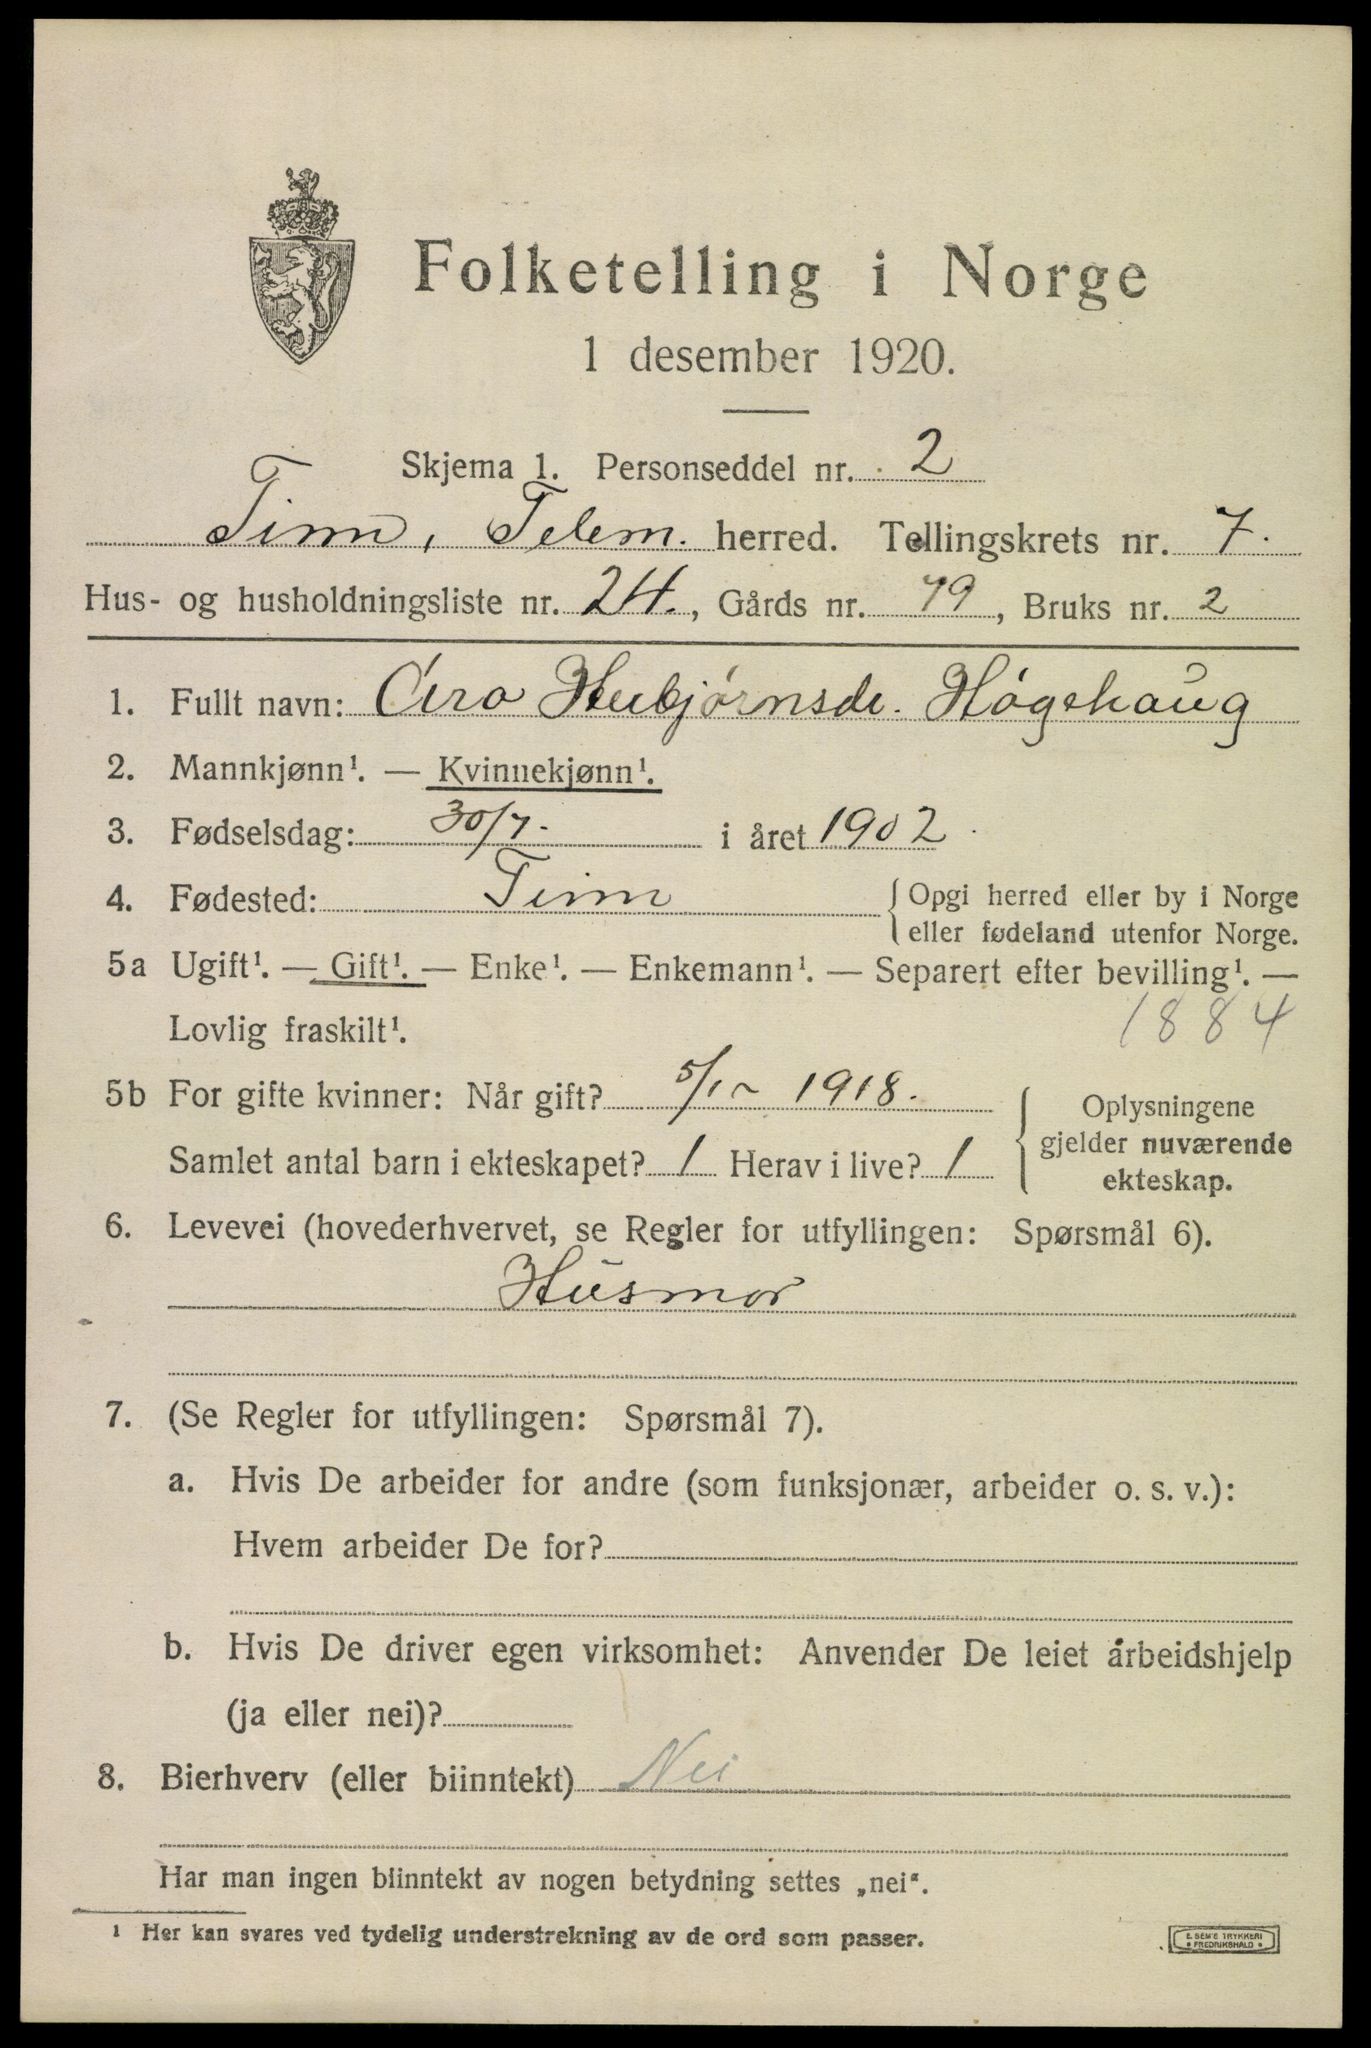 Folketelling i Norge
1 desember 1920.
Skjema 1. Personseddel nr. 2
Tinn, Telem. herred. Tellingskrets nr. 7.
Hus- og husholdningsliste nr. 24., Gårds nr. 79, Bruks nr. 2
1. Fullt navn: Høgehaug
2. Mannkjønn¹. — Kvinnekjønn¹.
3. Fødselsdag: 30/7. i året 1902.
4. Fødested: Tinn
{Opgi herred eller by i Norge
eller fødeland utenfor Norge.
5a Ugift¹. — Gift¹. — Enke¹. — Enkemann¹. — Separert efter bevilling¹. —
Lovlig fraskilt¹.
1884
5b For gifte kvinner: Når gift? 5/1 ~ 1918.
Samlet antal barn i ekteskapet? 1 Herav i live? 1
{Oplysningene
gjelder nuværende
ekteskap.
6. Levevei (hovederhvervet, se Regler for utfyllingen: Spørsmål 6).
Husmor
7. (Se Regler for utfyllingen: Spørsmål 7).
a. Hvis De arbeider for andre (som funksjonær, arbeider o. s. v.):
Hvem arbeider De for?
b. Hvis De driver egen virksomhet: Anvender De leiet arbeidshjelp
(ja eller nei)?
8. Bierhverv (eller biinntekt) Nei
Har man ingen biinntekt av nogen betydning settes „nei".
¹ Her kan svares ved tydelig understrekning av de ord som passer.
E. SEM'S TRYKKERI
• FREDRIKSHALD •